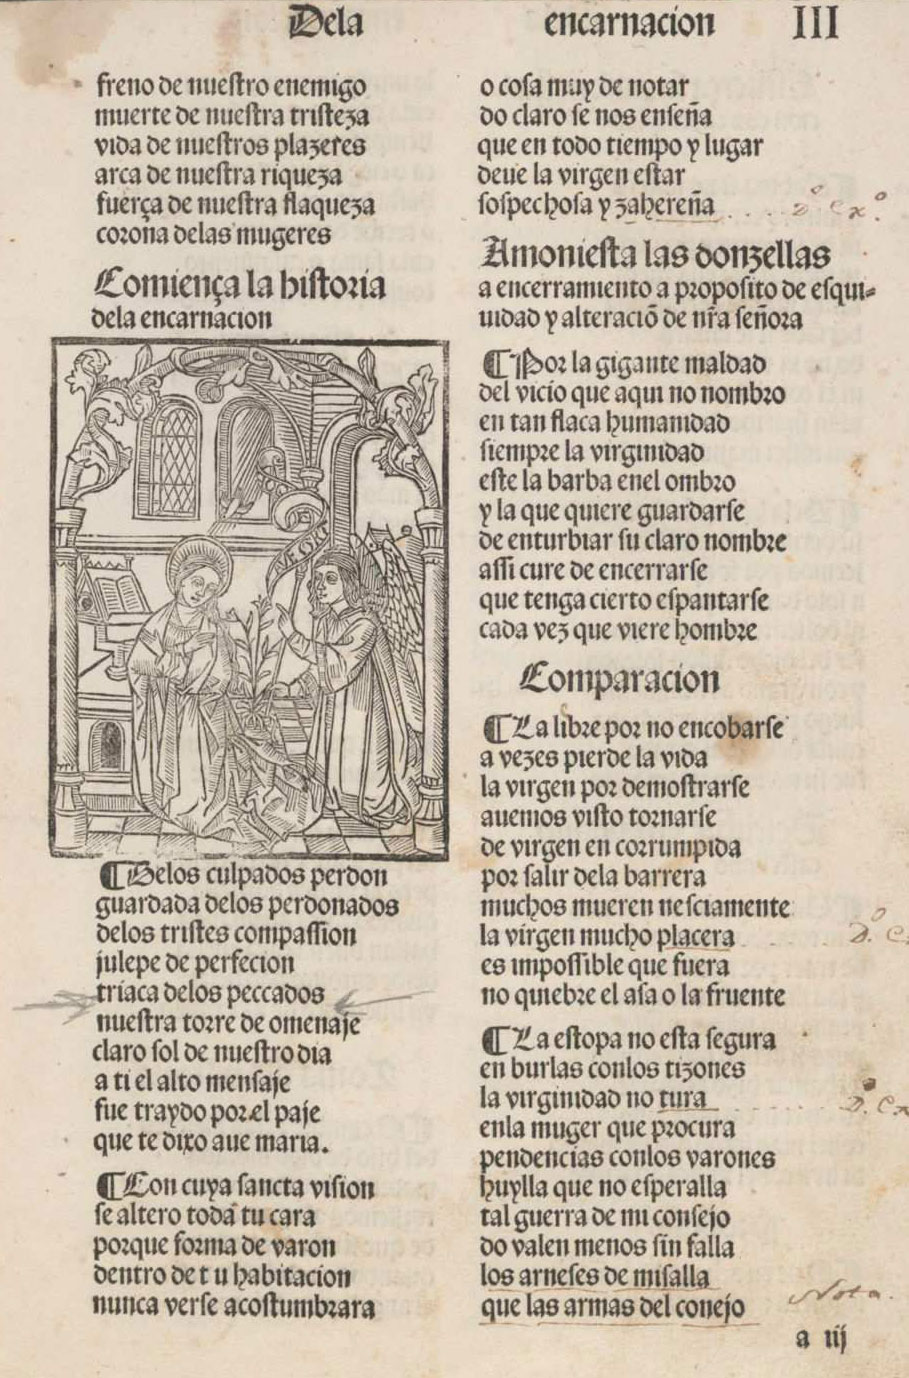 Dela encarnacion III
freno de nuestro enemigo
muerte de nuestra tristeza
vida de nuestros plazeres
arca de nuestra riqueza
fuerça de nuestra flaqueza
corona delas mugeres
Comiença la historia
dela encarnacion
¶ Delos culpados perdon
guardada delos perdonados
delos tristes compassion
julepe de perfecion
triaca delos peccados
nuestra torre de omenaje
claro sol de nuestro dia
a ti el alto mensaje
fue traydo por el paje
que te dixo aue maria.
¶ Con cuya sancta vision
se altero toda tu cara
porque forma de varon
dentro de tu habitacion
nunca verse acostumbrara
o cosa muy de notar
do claro se nos enseña
que en todo tiempo y lugar
deue la virgen estar
sospechosa y zahereña
Amoniesta las donzellas
a encerramiento a proposito de esqui-
uidad y alteraciõ de nr̃a señora
¶ Por la gigante maldad
del vicio que aqui no nombro
en tan flaca humanidad
siempre la virginidad
este la barba enel ombro
y la que quiere guardarse
de enturbiar su claro nombre
assi cure de encerrarse
que tenga cierto espantarse
cada vez que viere hombre
Comparacion
¶ La libre por no encobarse
a vezes pierde la vida
la virgen por demostrarse
auemos visto tornarse
de virgen en corrumpida
por salir dela barrera
muchos mueren nesciamente
la virgen mucho placera
es impossible que fuera
no quiebre el asa o la fruente
¶ La estopa no esta segura
en burlas conlos tizones
la virginidad no tura
enla muger que procura
pendencias conlos varones
huylla que no esperalla
tal guerra de mi consejo
do valen menos sin falla
los arneses de misalla
que las armas del conejo
Nota.
a iij